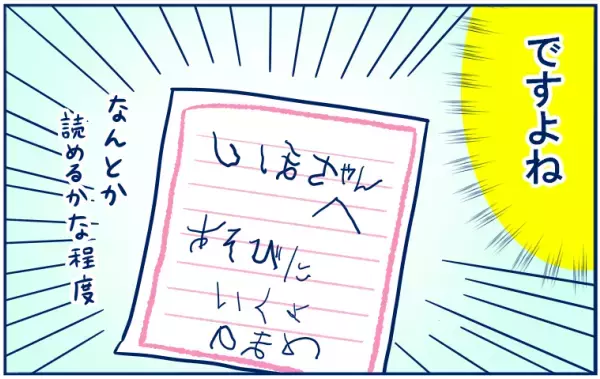 ですよね
しほちゃん
へ
あそびに
いくよ
なんとか
読めるかな程度